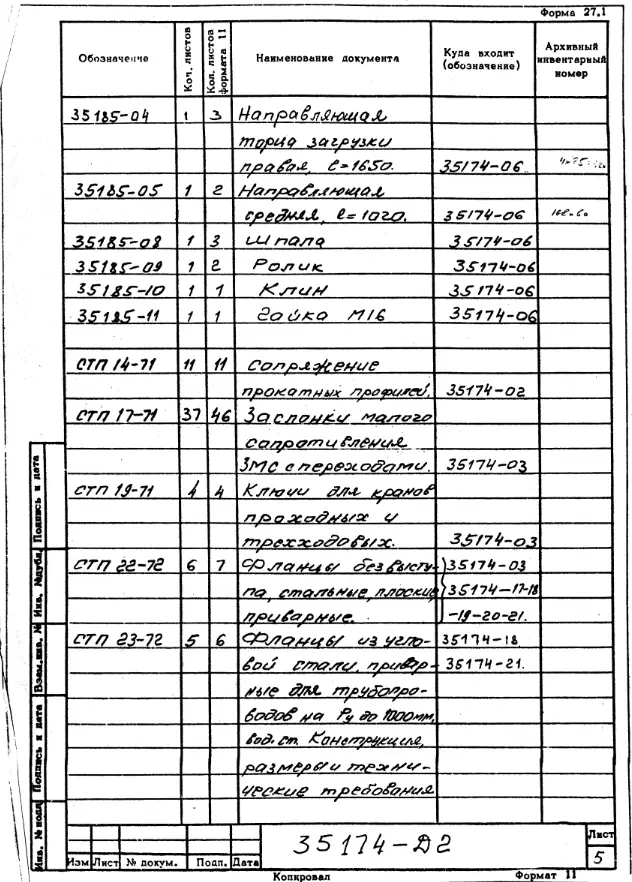 Форма 27.1
Обозначение Кол. листов Кол. листов формата 11 Наименование документа Куда входит (обозначение) Архивный инвентарный номер
35185-04 1 3 Направляющая
торца загрузки
правая, ℓ=1650. 35174-06
35185-05 1 2 Направляющая
средняя, ℓ=1020. 35174-06
35185-08 1 3 Шпала 35174-06
35185-09 1 2 Ролик 35174-06
35185-10 1 1 Клин 35174-06
35185-11 1 1 Гайка М16 35174-06
СТП 14-71 11 11 Сопряжение
прокатных профилей. 35174-02
СТП 17-71 37 46 Заслонки малого
сопротивления
ЗМС с переходами. 35174-03
СТП 19-71 4 4 Ключи для кранов
проходных и
трехходовых. 35174-03
СТП 22-72 6 7 Фланцы без высту- 35174-03
па, стальные, плоские 35174-17-18
приварные. -19-20-21.
СТП 23-72 5 6 Фланцы из угло- 35174-18
вой стали, привар- 35174-21.
ные для трубопро-
водов на Ру до 1000мм,
вод. ст. Конструкция,
размеры и техни-
ческие требования
Инв. № подл Подпись и дата Взам. инв. № Инв. № дубл. Подпись и дата
35174-Д2
Лист
5
Изм Лист № докум. Подп. Дата
Копировал Формат 11